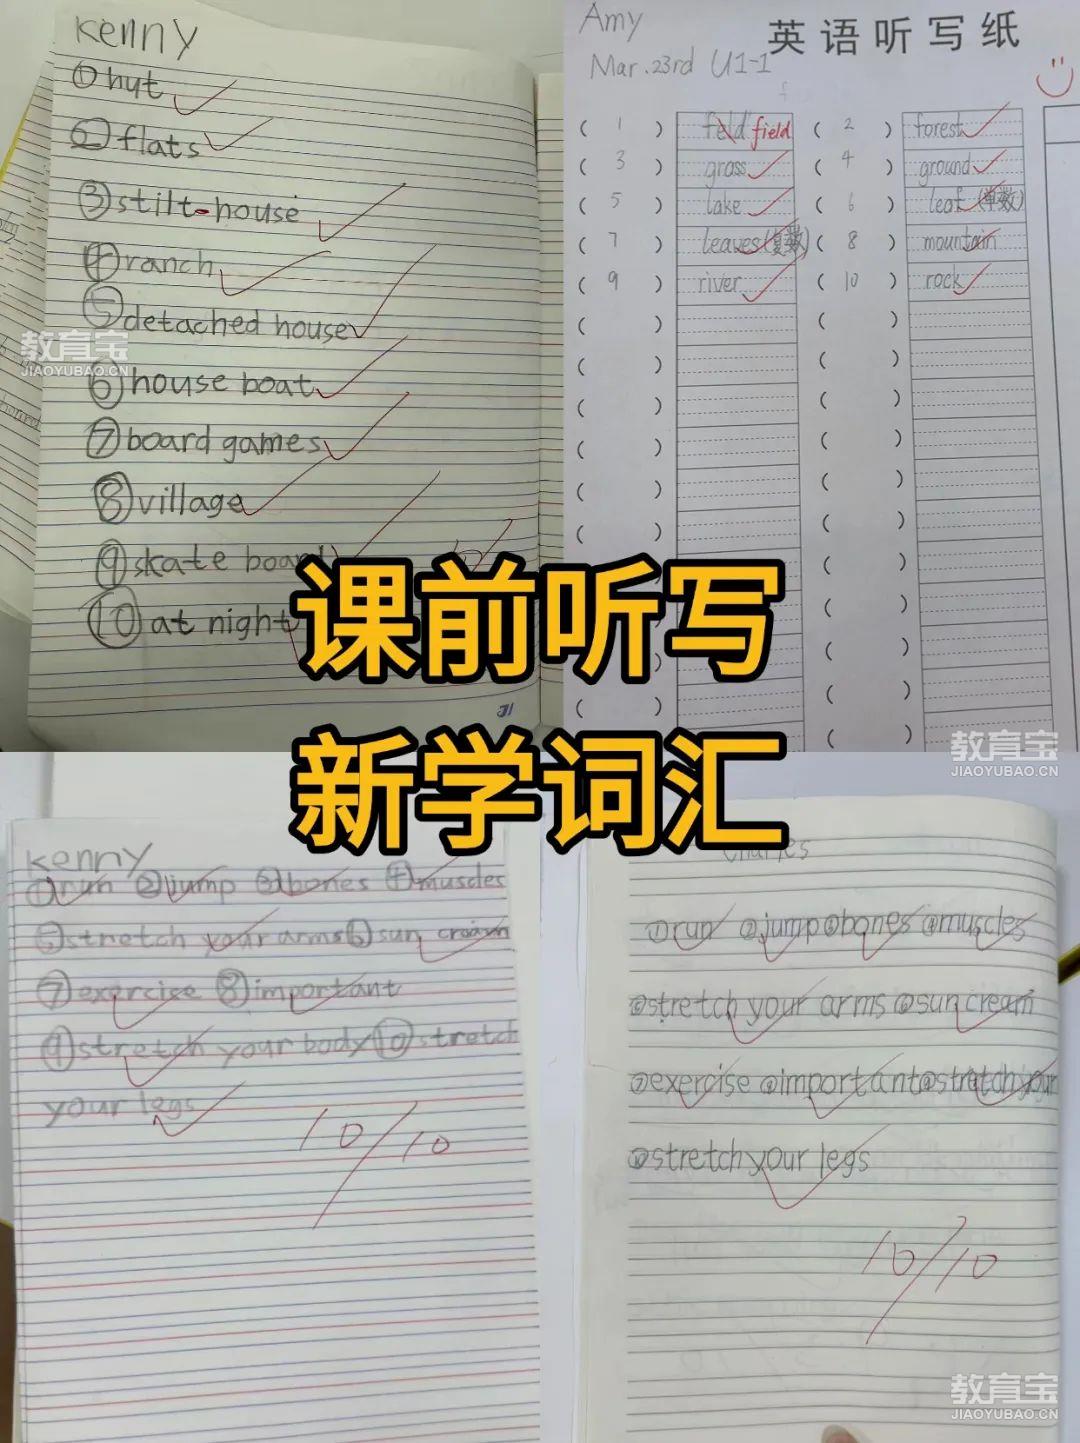 Kenny
①hut
②flats
③stilt-house
④ranch
⑤detached house
⑥house boat
⑦board games
⑧village
⑨skate board
⑩at night
Amy
英语听写纸
Mar.23rd U1-1
( 1 ) feld field ( 2 ) forest
( 3 ) grass ( 4 ) ground
( 5 ) lake ( 6 ) leaf (单数)
( 7 ) leaves(复数) ( 8 ) mountain
( 9 ) river ( 10 ) rock
教育宝
JIAOYUBAO.CN
课前听写
新学词汇
教育宝
JIAOYUBAO.CN
Kenny
①run ②jump ③bones ④muscles
⑤stretch your arms⑥sun cream
⑦exercise ⑧important
⑨stretch your body⑩stretch
your legs
10/10
Charles
①run ②jump③bones④muscles
⑤stretch your arms⑥sun cream
⑦exercise⑧important⑨stretch your
⑩stretch your legs
10/10
教育宝
JIAOYUBAO.CN